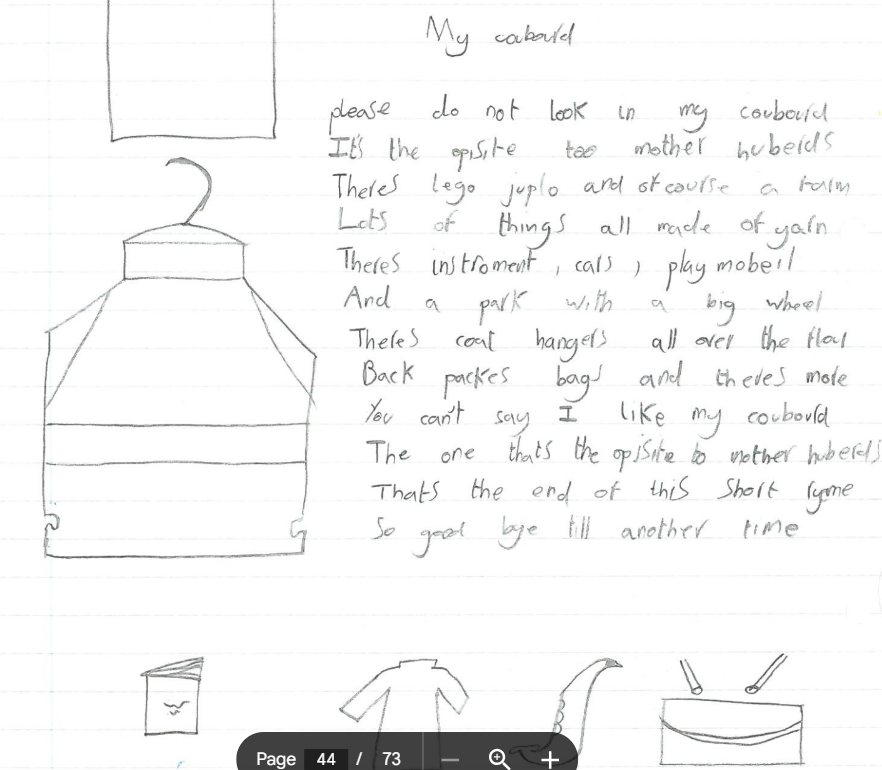 My cobourd
please do not look in my coubourd
It's the opisite too mother huberds
Theres lego juplo and of course a farm
Lots of things all made of yarn
Theres instroment, cars, play mobeil
And a park with a big wheel
Theres coat hangers all over the flour
Back packes bags and theres more
You can't say I like my coubourd
The one thats the opisite to mother huberds
Thats the end of this short ryme
So good bye till another time
Page 44 / 73